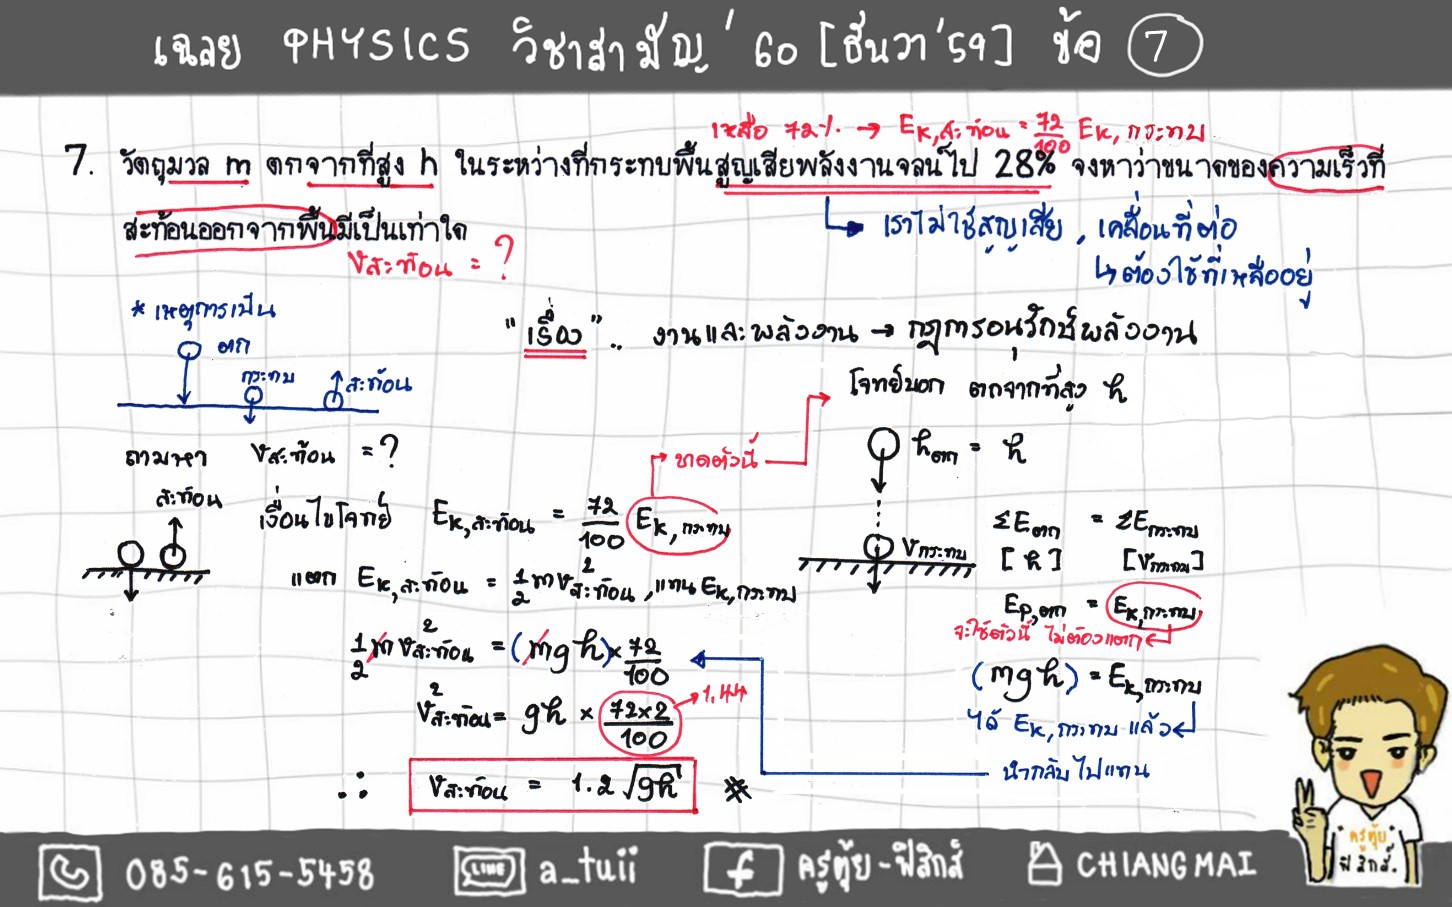 เฉลย PHYSICS วิชาสามัญ' 60 [ธันวา'59] ข้อ 7
เหลือ 72% → Ek,สะท้อน = 72/100 Ek,กระทบ
7. วัตถุมวล m ตกจากที่สูง h ในระหว่างที่กระทบพื้นสูญเสียพลังงานจลน์ไป 28% จงหาว่าขนาดของความเร็วที่
สะท้อนออกจากพื้นมีเป็นเท่าใด
vสะท้อน = ?
เราไม่ใช้สูญเสีย, เคลื่อนที่ต่อ
↳ ต้องใช้ที่เหลืออยู่
* เหตุการณ์เป็น
ตก
กระทบ
สะท้อน
"เรื่อง".. งานและพลังงาน → กฎการอนุรักษ์พลังงาน
โจทย์บอก ตกจากที่สูง h
ถามหา vสะท้อน = ?
สะท้อน
→ ขาดตัวนี้
เงื่อนไขโจทย์ Ek,สะท้อน = 72/100 Ek,กระทบ
แตก Ek,สะท้อน = 1/2 mv²สะท้อน, แทน Ek,กระทบ
1/2 mv²สะท้อน = (mgh) × 72/100
v²สะท้อน = gh × 72×2/100 → 1.44
∴ vสะท้อน = 1.2 √gh *
hตก = h
vกระทบ
ΣEตก = ΣEกระทบ
[h] [vกระทบ]
Ep,ตก = Ek,กระทบ
จะใช้ตัวนี้ ไม่ต้องแตก
(mgh) = Ek,กระทบ
ได้ Ek,กระทบ แล้ว
นำกลับไปแทน
ครูตุ้ย
ฟิสิกส์.
085-615-5458 LINE a_tuii f ครูตุ้ย-ฟิสิกส์ CHIANGMAI